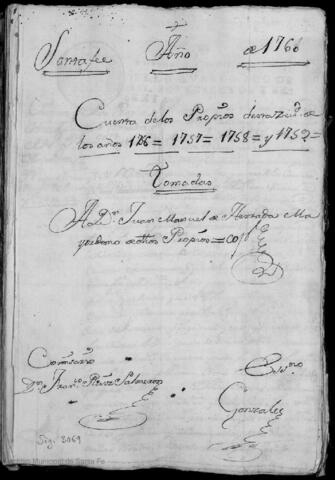 Santafee Año de 1760
Cuenta de los Propios
los años 1756 = 1757 = 1758 = y 1759 =
Tomadas
A Dn Juan Manuel de Herrada Ma
yordomo de dhos Propios =
Comisario
Dn Franco Perez Salmeron
Essno
Gonzales
Sig. 3069
Archivo Municipal de Santa Fe